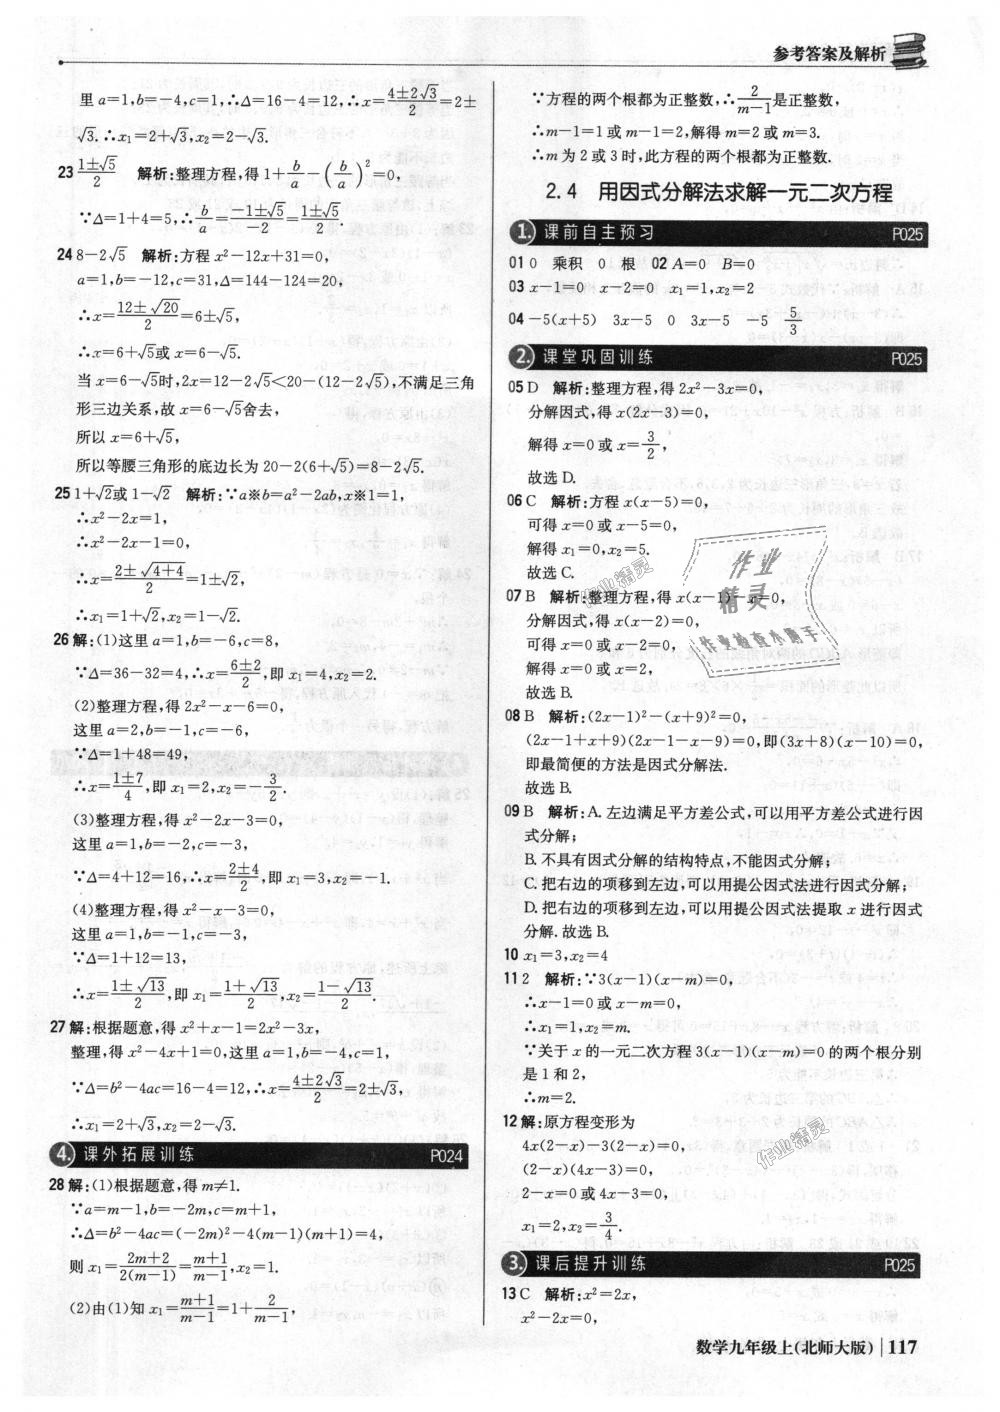 参考答案及解析
里 a=1,b=-4,c=1,∴Δ=16-4=12,∴x=(4±2√3)/2=2±
√3.∴x₁=2+√3,x₂=2-√3.
23 (1±√5)/2 解析:整理方程,得 1+b/a-(b/a)²=0,
∵Δ=1+4=5,∴b/a=(-1±√5)/(-2)=(1±√5)/2.
24 8-2√5 解析:方程 x²-12x+31=0,
a=1,b=-12,c=31,Δ=144-124=20,
∴x=(12±√20)/2=6±√5,
∴x=6+√5或 x=6-√5.
当 x=6-√5时,2x=12-2√5<20-(12-2√5),不满足三角
形三边关系,故 x=6-√5舍去,
所以 x=6+√5,
所以等腰三角形的底边长为 20-2(6+√5)=8-2√5.
25 1+√2或 1-√2 解析:∵a※b=a²-2ab,x※1=1,
∴x²-2x=1,
∴x²-2x-1=0,
∴x=(2±√(4+4))/2=1±√2,
∴x₁=1+√2,x₂=1-√2.
26 解:(1)这里 a=1,b=-6,c=8,
∵Δ=36-32=4,∴x=(6±2)/2,即 x₁=4,x₂=2.
(2)整理方程,得 2x²-x-6=0,
这里 a=2,b=-1,c=-6,
∵Δ=1+48=49,
∴x=(1±7)/4,即 x₁=2,x₂=-3/2.
(3)整理方程,得 x²-2x-3=0,
这里 a=1,b=-2,c=-3,
∵Δ=4+12=16,∴x=(2±4)/2,即 x₁=3,x₂=-1.
(4)整理方程,得 x²-x-3=0,
这里 a=1,b=-1,c=-3,
∵Δ=1+12=13,
∴x=(1±√13)/2,即 x₁=(1+√13)/2,x₂=(1-√13)/2.
27 解:根据题意,得 x²+x-1=2x²-3x,
整理,得 x²-4x+1=0,这里 a=1,b=-4,c=1,
∵Δ=b²-4ac=16-4=12,∴x=(4±2√3)/2=2±√3,
∴x₁=2+√3,x₂=2-√3.
4. 课外拓展训练 P024
28 解:(1)根据题意,得 m≠1.
∵a=m-1,b=-2m,c=m+1,
∴Δ=b²-4ac=(-2m)²-4(m-1)(m+1)=4,
则 x₁=(2m+2)/(2(m-1))=(m+1)/(m-1),x₂=1.
(2)由(1)知 x₁=(m+1)/(m-1)=1+2/(m-1),
∵方程的两个根都为正整数,∴2/(m-1)是正整数,
∴m-1=1或 m-1=2,解得 m=2或 m=3.
∴m 为 2 或 3 时,此方程的两个根都为正整数.
2.4 用因式分解法求解一元二次方程
1. 课前自主预习 P025
01 0 乘积 0 根 02 A=0 B=0
03 x-1=0 x-2=0 x₁=1,x₂=2
04 -5(x+5) 3x-5 0 3x-5 -5 5/3
2. 课堂巩固训练 P025
05 D 解析:整理方程,得 2x²-3x=0,
分解因式,得 x(2x-3)=0,
解得 x=0 或 x=3/2,
故选 D.
06 C 解析:方程 x(x-5)=0,
可得 x=0 或 x-5=0,
解得 x₁=0,x₂=5.
故选 C.
07 B 解析:整理方程,得 x(x-1)-x=0,
分解因式,得 x(x-2)=0,
可得 x=0 或 x-2=0,
解得 x=0 或 x=2,
故选 B.
08 B 解析:(2x-1)²-(x+9)²=0,
(2x-1+x+9)(2x-1-x-9)=0,即(3x+8)(x-10)=0,
即最简便的方法是因式分解法.
故选 B.
09 B 解析:A. 左边满足平方差公式,可以用平方差公式进行因
式分解;
B. 不具有因式分解的结构特点,不能因式分解;
C. 把右边的项移到左边,可以用提公因式法进行因式分解;
D. 把右边的项移到左边,可以用提公因式法提取 x 进行因式
分解. 故选 B.
10 x₁=3,x₂=4
11 2 解析:∵3(x-1)(x-m)=0,
∴x-1=0 或 x-m=0,
∴x₁=1,x₂=m.
∵关于 x 的一元二次方程 3(x-1)(x-m)=0 的两个根分别
是 1 和 2,
∴m=2.
12 解:原方程变形为
4x(2-x)-3(2-x)=0,
(2-x)(4x-3)=0,
2-x=0 或 4x-3=0,
x₁=2,x₂=3/4.
3. 课后提升训练 P025
13 C 解析:x²=2x,
x²-2x=0,
数学九年级上(北师大版) 117
作业
精灵
作业检查小助手
作业精灵
作业精灵